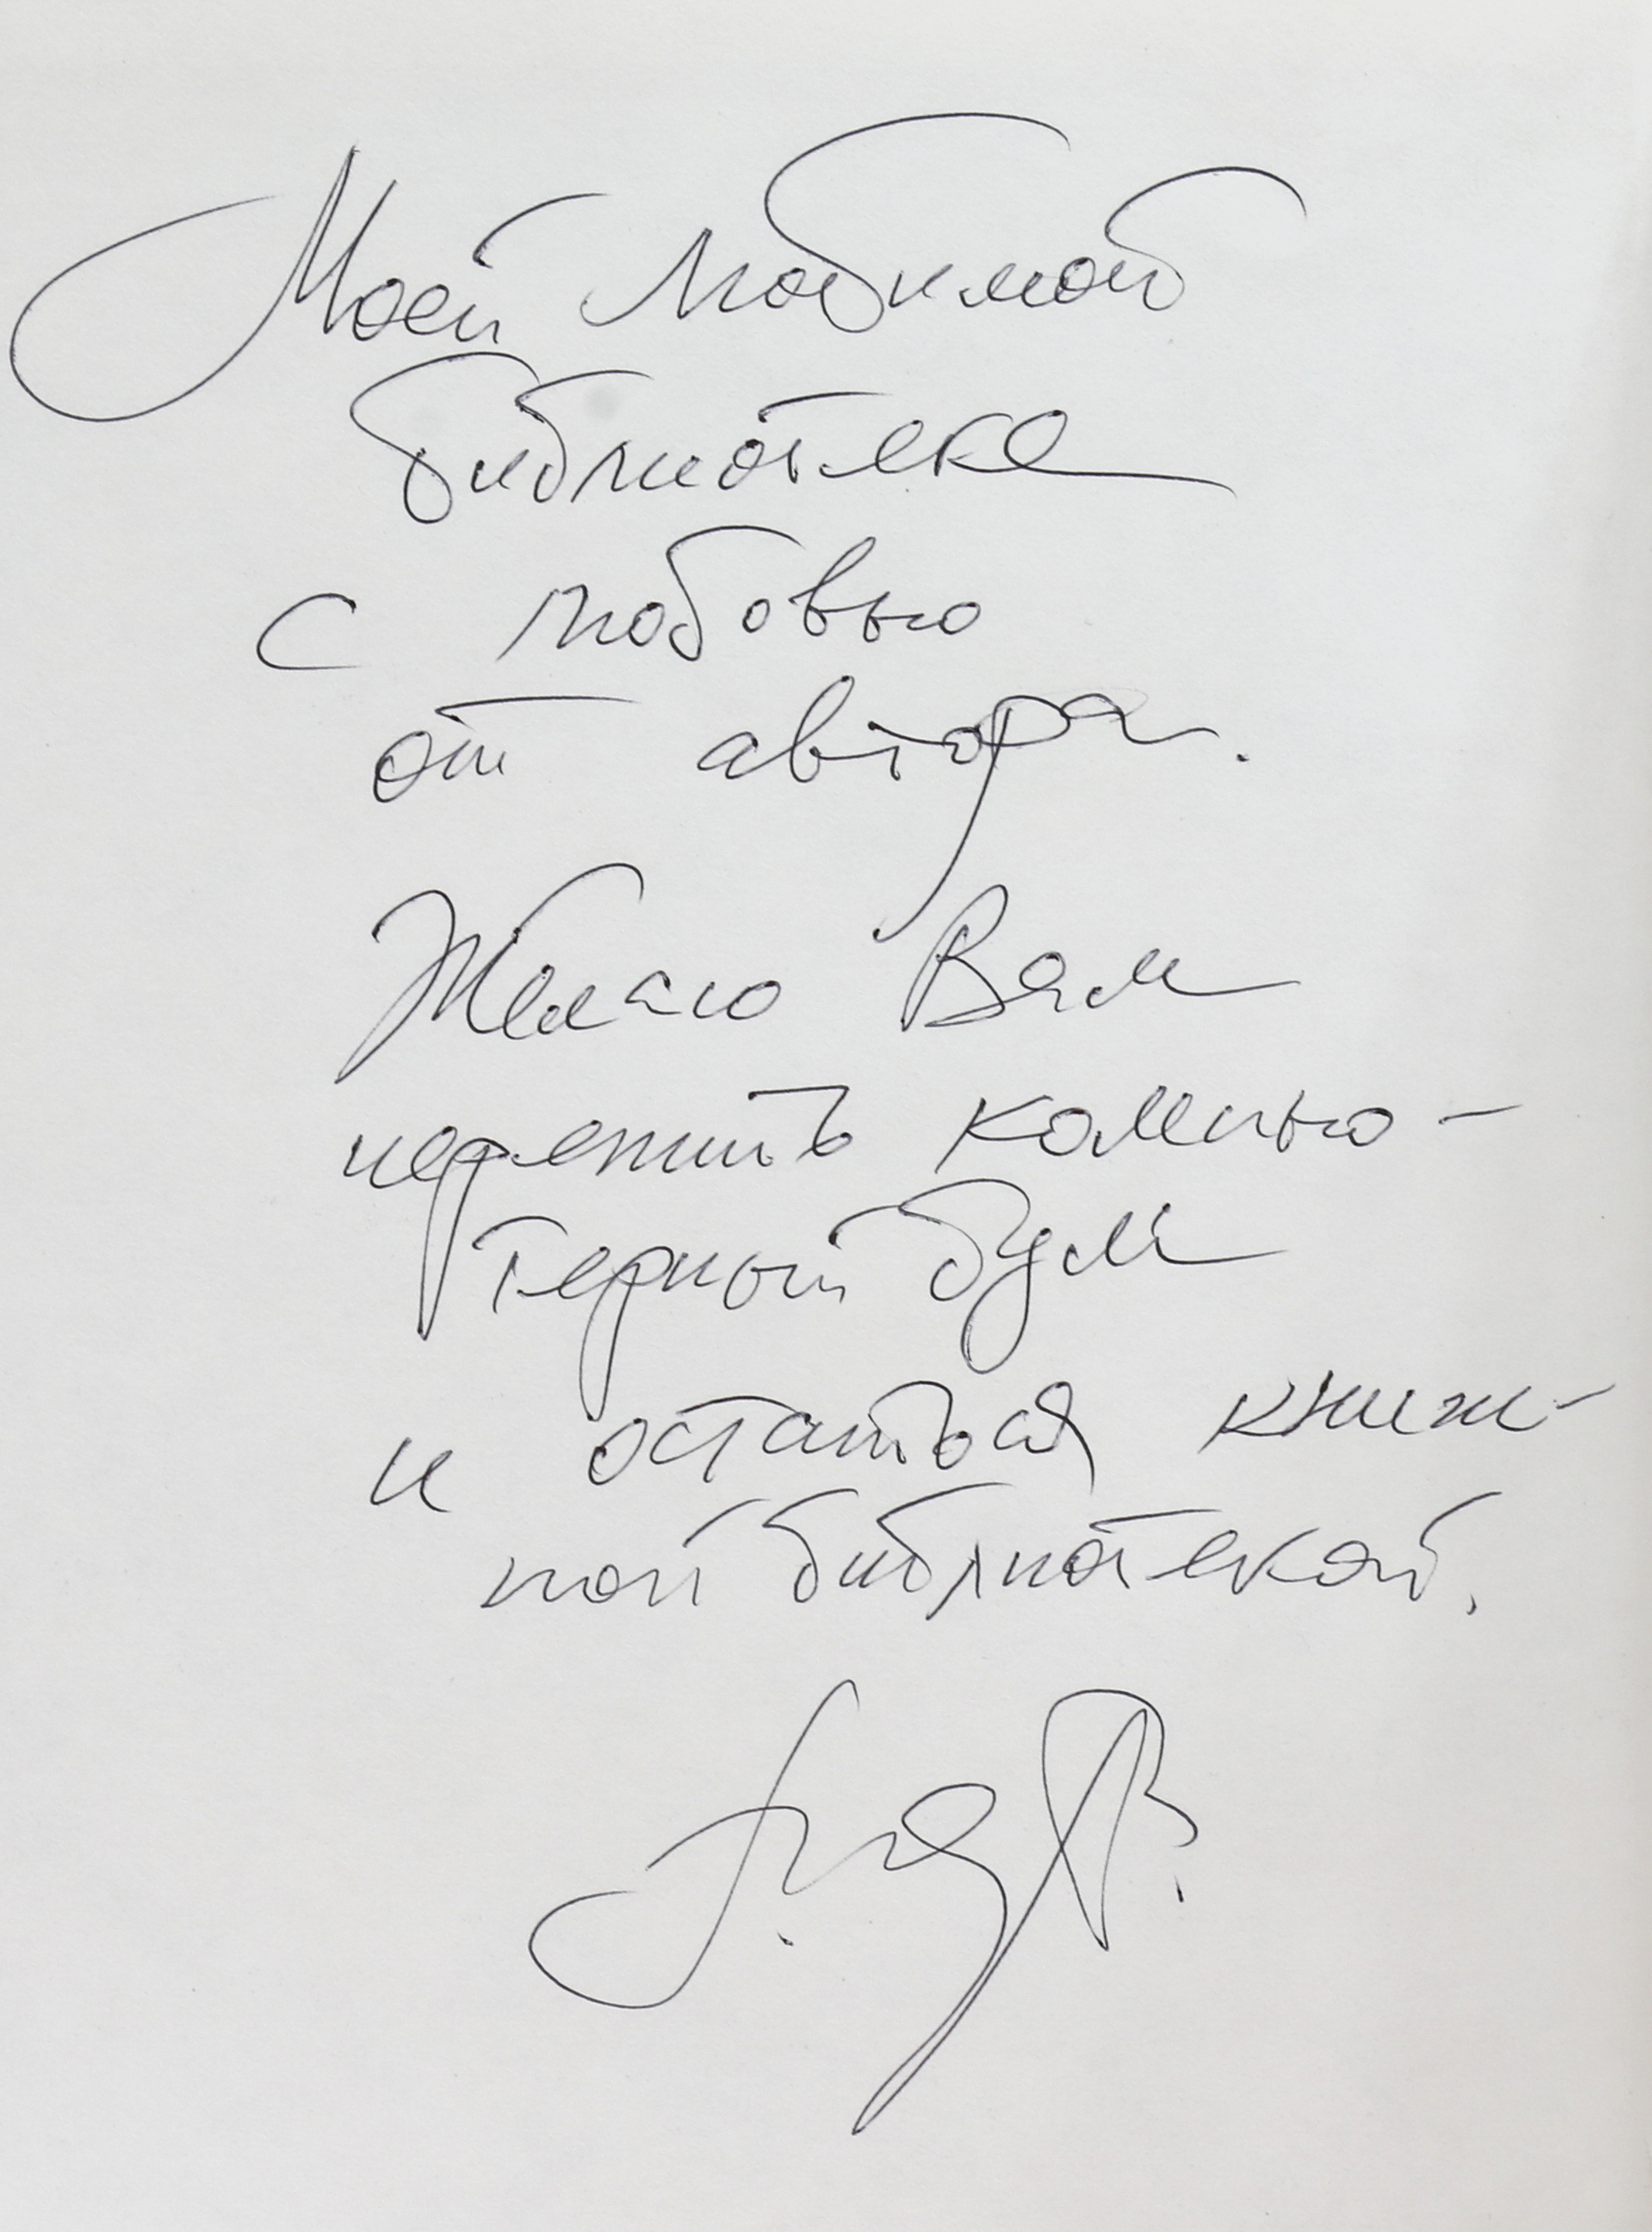 Моей любимой
библиотеке
с любовью
от автора.
Желаю Вам
пережить компью-
терный бум
и остаться книж-
ной библиотекой.